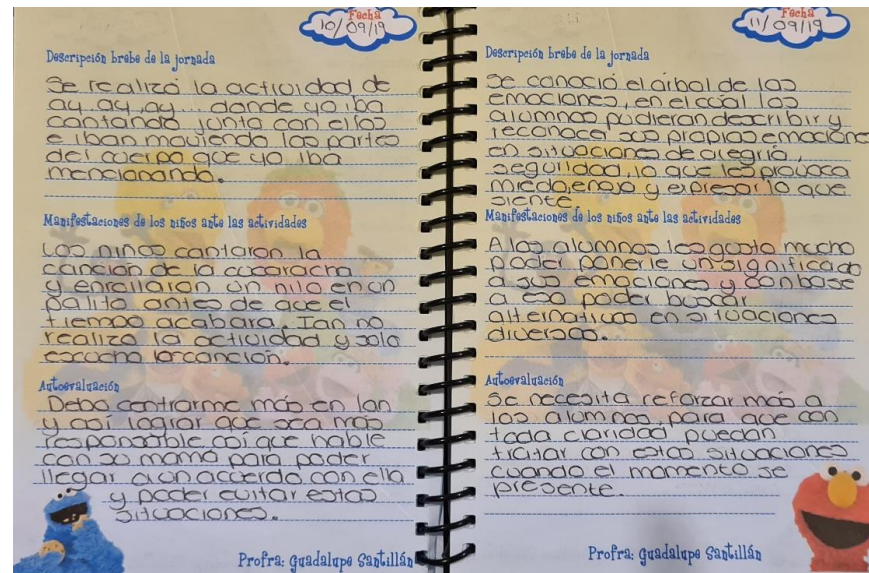 Fecha
10/09/19
Descripción brebe de la jornada
Se realizó la actividad de
ay, ay, ay... donde yo iba
cantando junto con ellos
e iban moviendo las partes
del cuerpo que yo iba
mencionando.
Manifestaciones de los niños ante las actividades
Los niños cantaron la
canción de la cucaracha
y enrollaron un hilo en un
palito antes de que el
tiempo acabara, Ian no
realizo la actividad y solo
escucho la canción.
Autoevaluación
Debo centrarme más en Ian
y así lograr que sea más
responsable así que hable
con su mamá para poder
llegar a un acuerdo con ella
y poder evitar estas
situaciones.
Profra: Guadalupe Santillán
Fecha
11/09/19
Descripción brebe de la jornada
Se conoció el árbol de las
emociones, en el cúal los
alumnos pudieran describir y
reconocer sus propias emociones
en situaciones de alegría,
seguridad, lo que les provoca
miedo, enojo y expresar lo que
siente.
Manifestaciones de los niños ante las actividades
A los alumnos les gusto mucho
poder ponerle un significado
a sus emociones y con base
a eso poder buscar
alternativas en situaciones
diversas.
Autoevaluación
Se necesita reforzar más a
los alumnos, para que con
toda claridad puedan
tratar con estas situaciones
cuando el momento se
presente.
Profra: Guadalupe Santillán